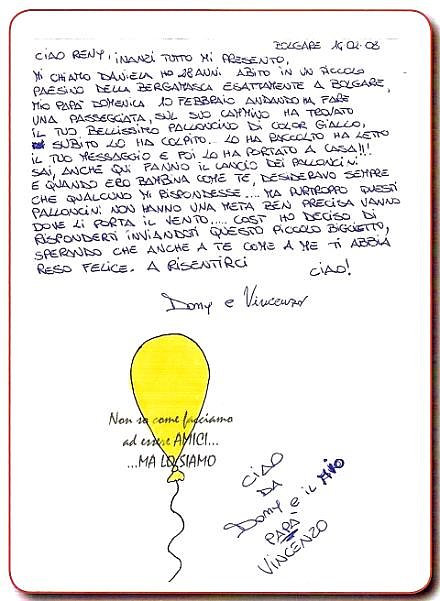 BOLGARE 16.02.08
CIAO RENY, INANZI TUTTO MI PRESENTO,
MI CHIAMO DANIELA HO 28 ANNI ABITO IN UN PICCOLO
PAESINO DELLA BERGAMASCA ESATTAMENTE A BOLGARE,
MIO PAPÀ DOMENICA 10 FEBBRAIO ANDANDO HA FARE
UNA PASSEGGIATA, SUL SUO CAMMINO HA TROVATO
IL TUO BELLISSIMO PALLONCINO DI COLOR GIALLO,
SUBITO LO HA COLPITO... LO HA RACCOLTO HA LETTO
IL TUO MESSAGGIO E POI LO HA PORTATO A CASA!!!
SAI, ANCHE QUI FANNO IL LANCIO DEI PALLONCINI
E QUANDO ERO BAMBINA COME TE, DESIDERAVO SEMPRE
CHE QUALCUNO MI RISPONDESSE.... MA PURTROPPO QUESTI
PALLONCINI NON HANNO UNA META BEN PRECISA VANNO
DOVE LI PORTA IL VENTO..... COSÌ HO DECISO DI
RISPONDERTI INVIANDOTI QUESTO PICCOLO BIGLIETTO,
SPERANDO CHE ANCHE A TE COME A ME TI ABBIA
RESO FELICE. A RISENTIRCI
CIAO!
Damy e Vincenzo
Non so come facciamo
ad essere AMICI...
...MA LO SIAMO
CIAO
DA
Damy e IL MIO
PAPÀ
VINCENZO